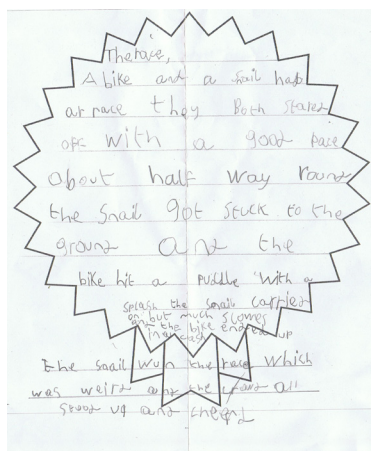 The race,
A bike and a snail had
a race they Both stared
off with a good pace
about half way round
the snail got stuck to the
ground and the
bike hit a puddle with a
splash the snail carried
on but much slower
and the bike ended up
in a crash
the snail wun the race which
was weird and the all
stood up and cheerd